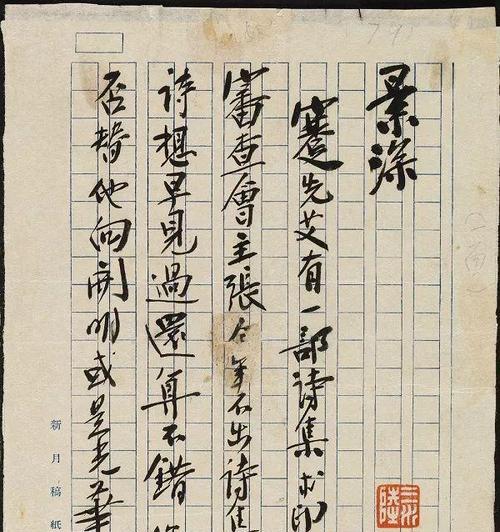 景深
蹇先艾有一部詩集求印
審查會主張今年不出詩集
詩想早見過還算不錯
否替他向開明或是光華
新月稿紙